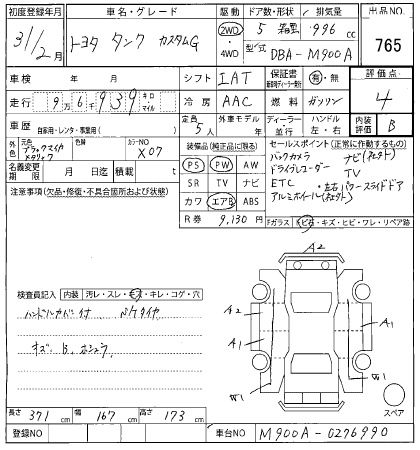 初度登録年月 車名・グレード 駆動 ドア数・形状 排気量 出品NO.
31/2月 トヨタ タンク カスタムG 2WD 4WD 5 箱型 996 cc 765
型式 DBA-M900A
車検 年 月 シフト IAT 保証書 新車時ディーラー発行 有・無 評価点
走行 9万6千939 キロ マイル 冷房 AAC 燃料 ガソリン 4
車歴 自家用・レンタ・事業用( ) 定員 5人 外車モデル 年 ディーラー 並行 ハンドル 左・右 内装評価 B
外色 元色 ブラックマイカメタリック 色替 カラーNO X07
装備品(純正品に限る) セールスポイント(正常に作動するもの)
PS PW AW
SR TV ナビ
カワ エアB ABS
バックカメラ ナビ(社外)
ドライブレコーダー TV
ETC ・左右パワースライドドア
アルミホイール(社外)
名義変更期限 月 日迄 積載 t
注意事項(欠品・修復・不具合箇所および状態)
R券 9,130 円
Fガラス 飛石・キズ・ヒビ・ワレ・リペア跡
検査員記入 内装 汚レ・スレ・キズ・キレ・コゲ・穴
ハンドルカバー付 N/Tタイヤ
キズ B,
A2
A2
A1
A1
W1
W1
A2
スペア
長さ 371 cm 幅 167 cm 高さ 173 cm
登録NO 車台NO M900A-0276990